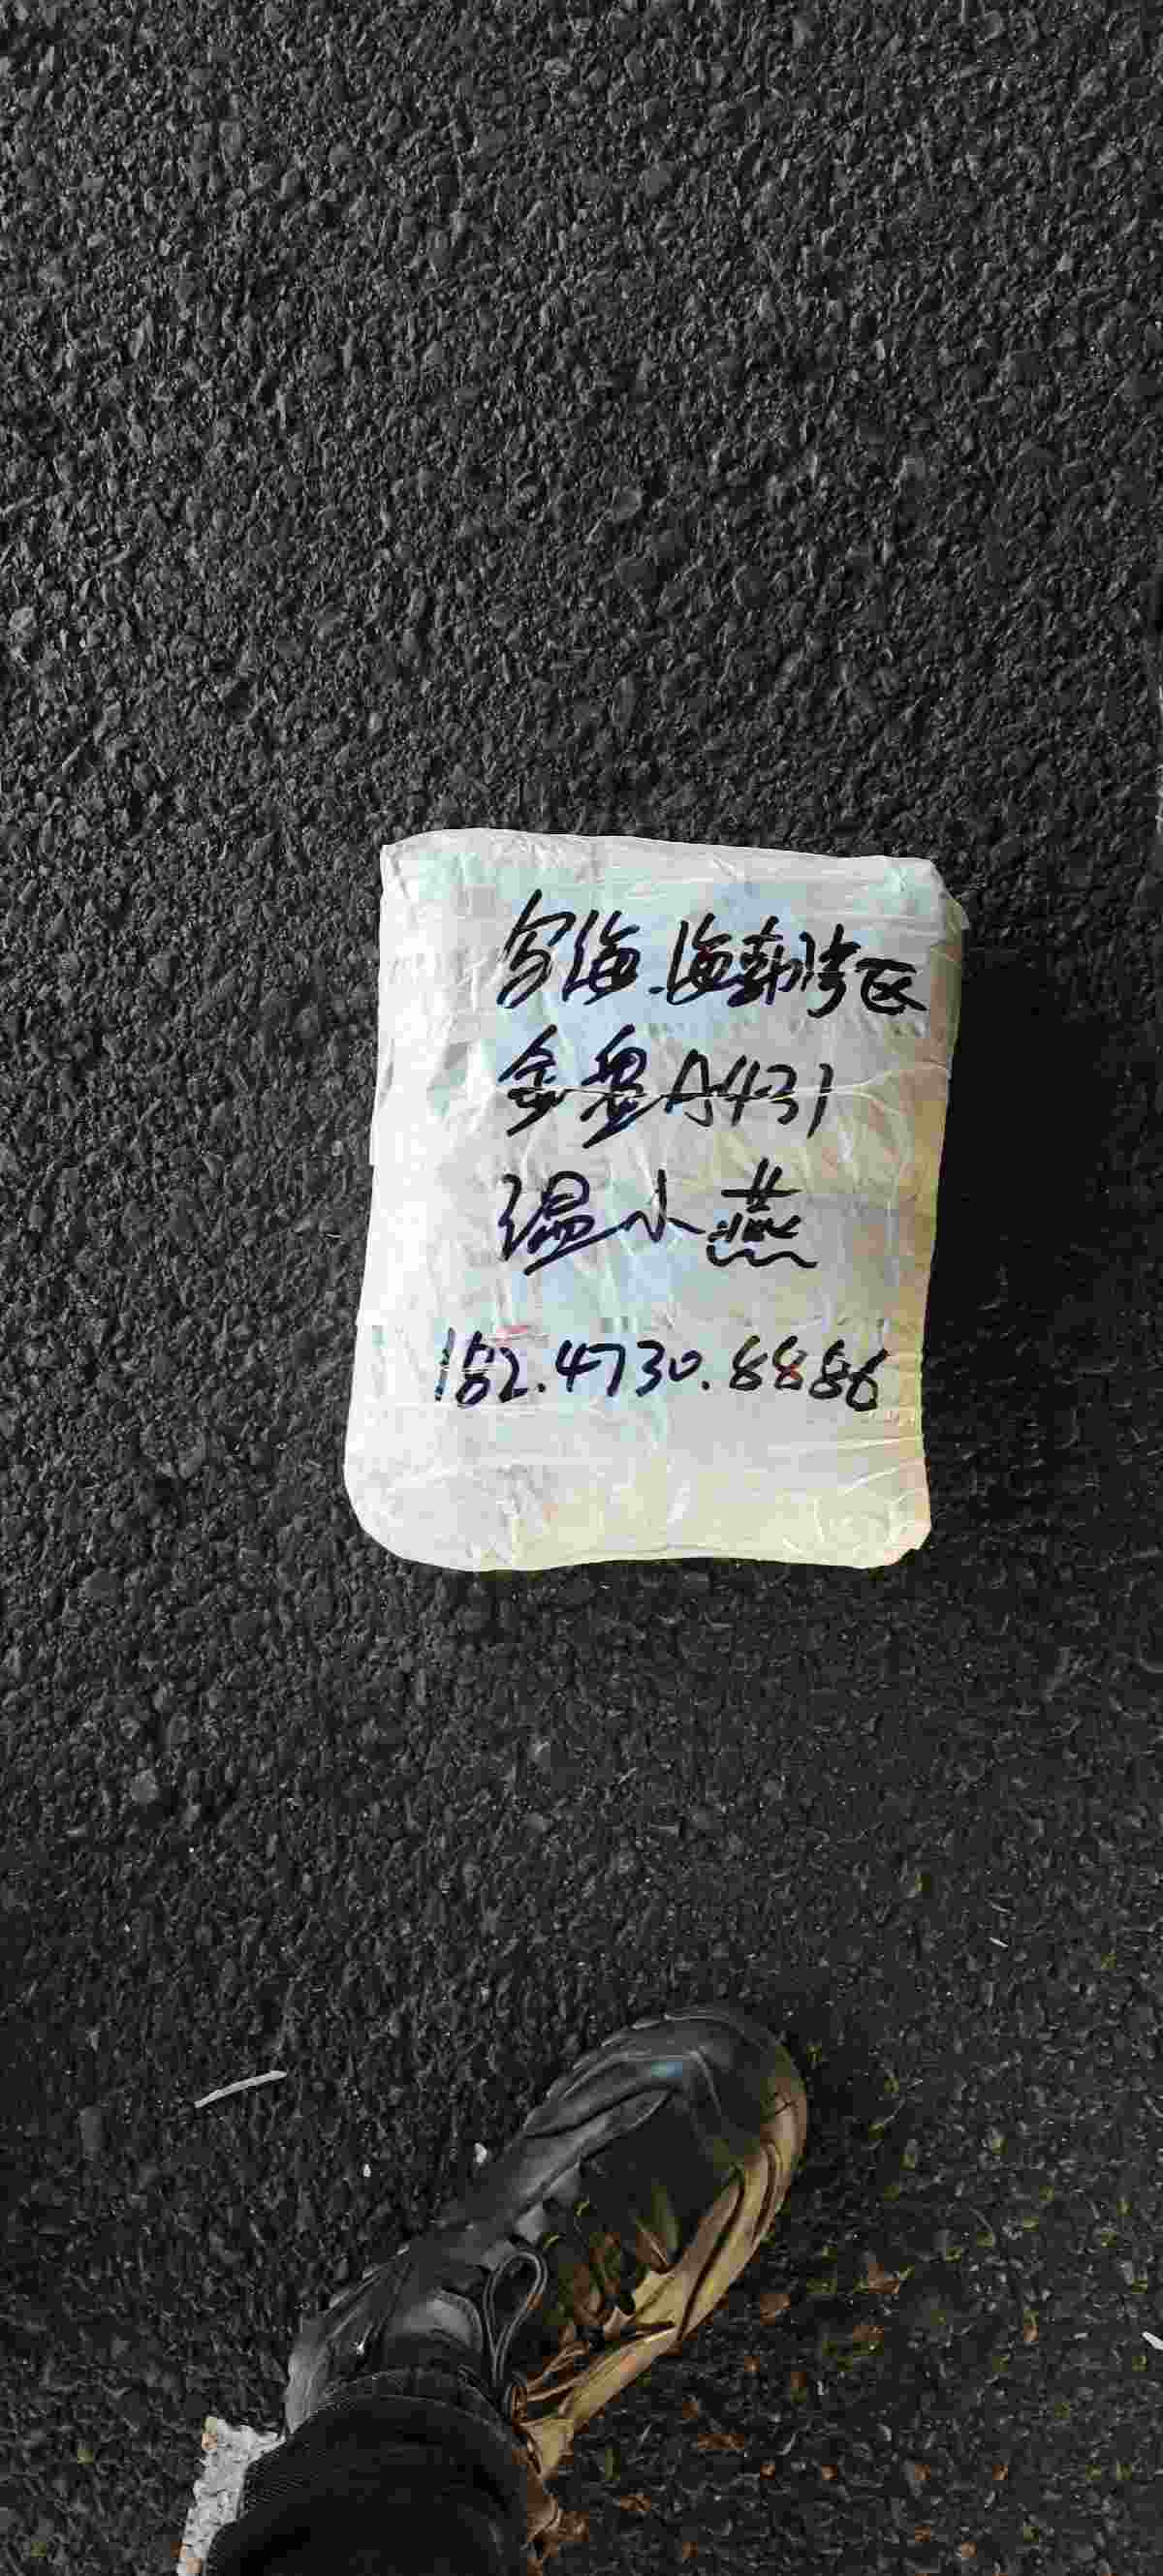 乌海.海勃湾区
金盘A431
温小燕
182.4730.8886